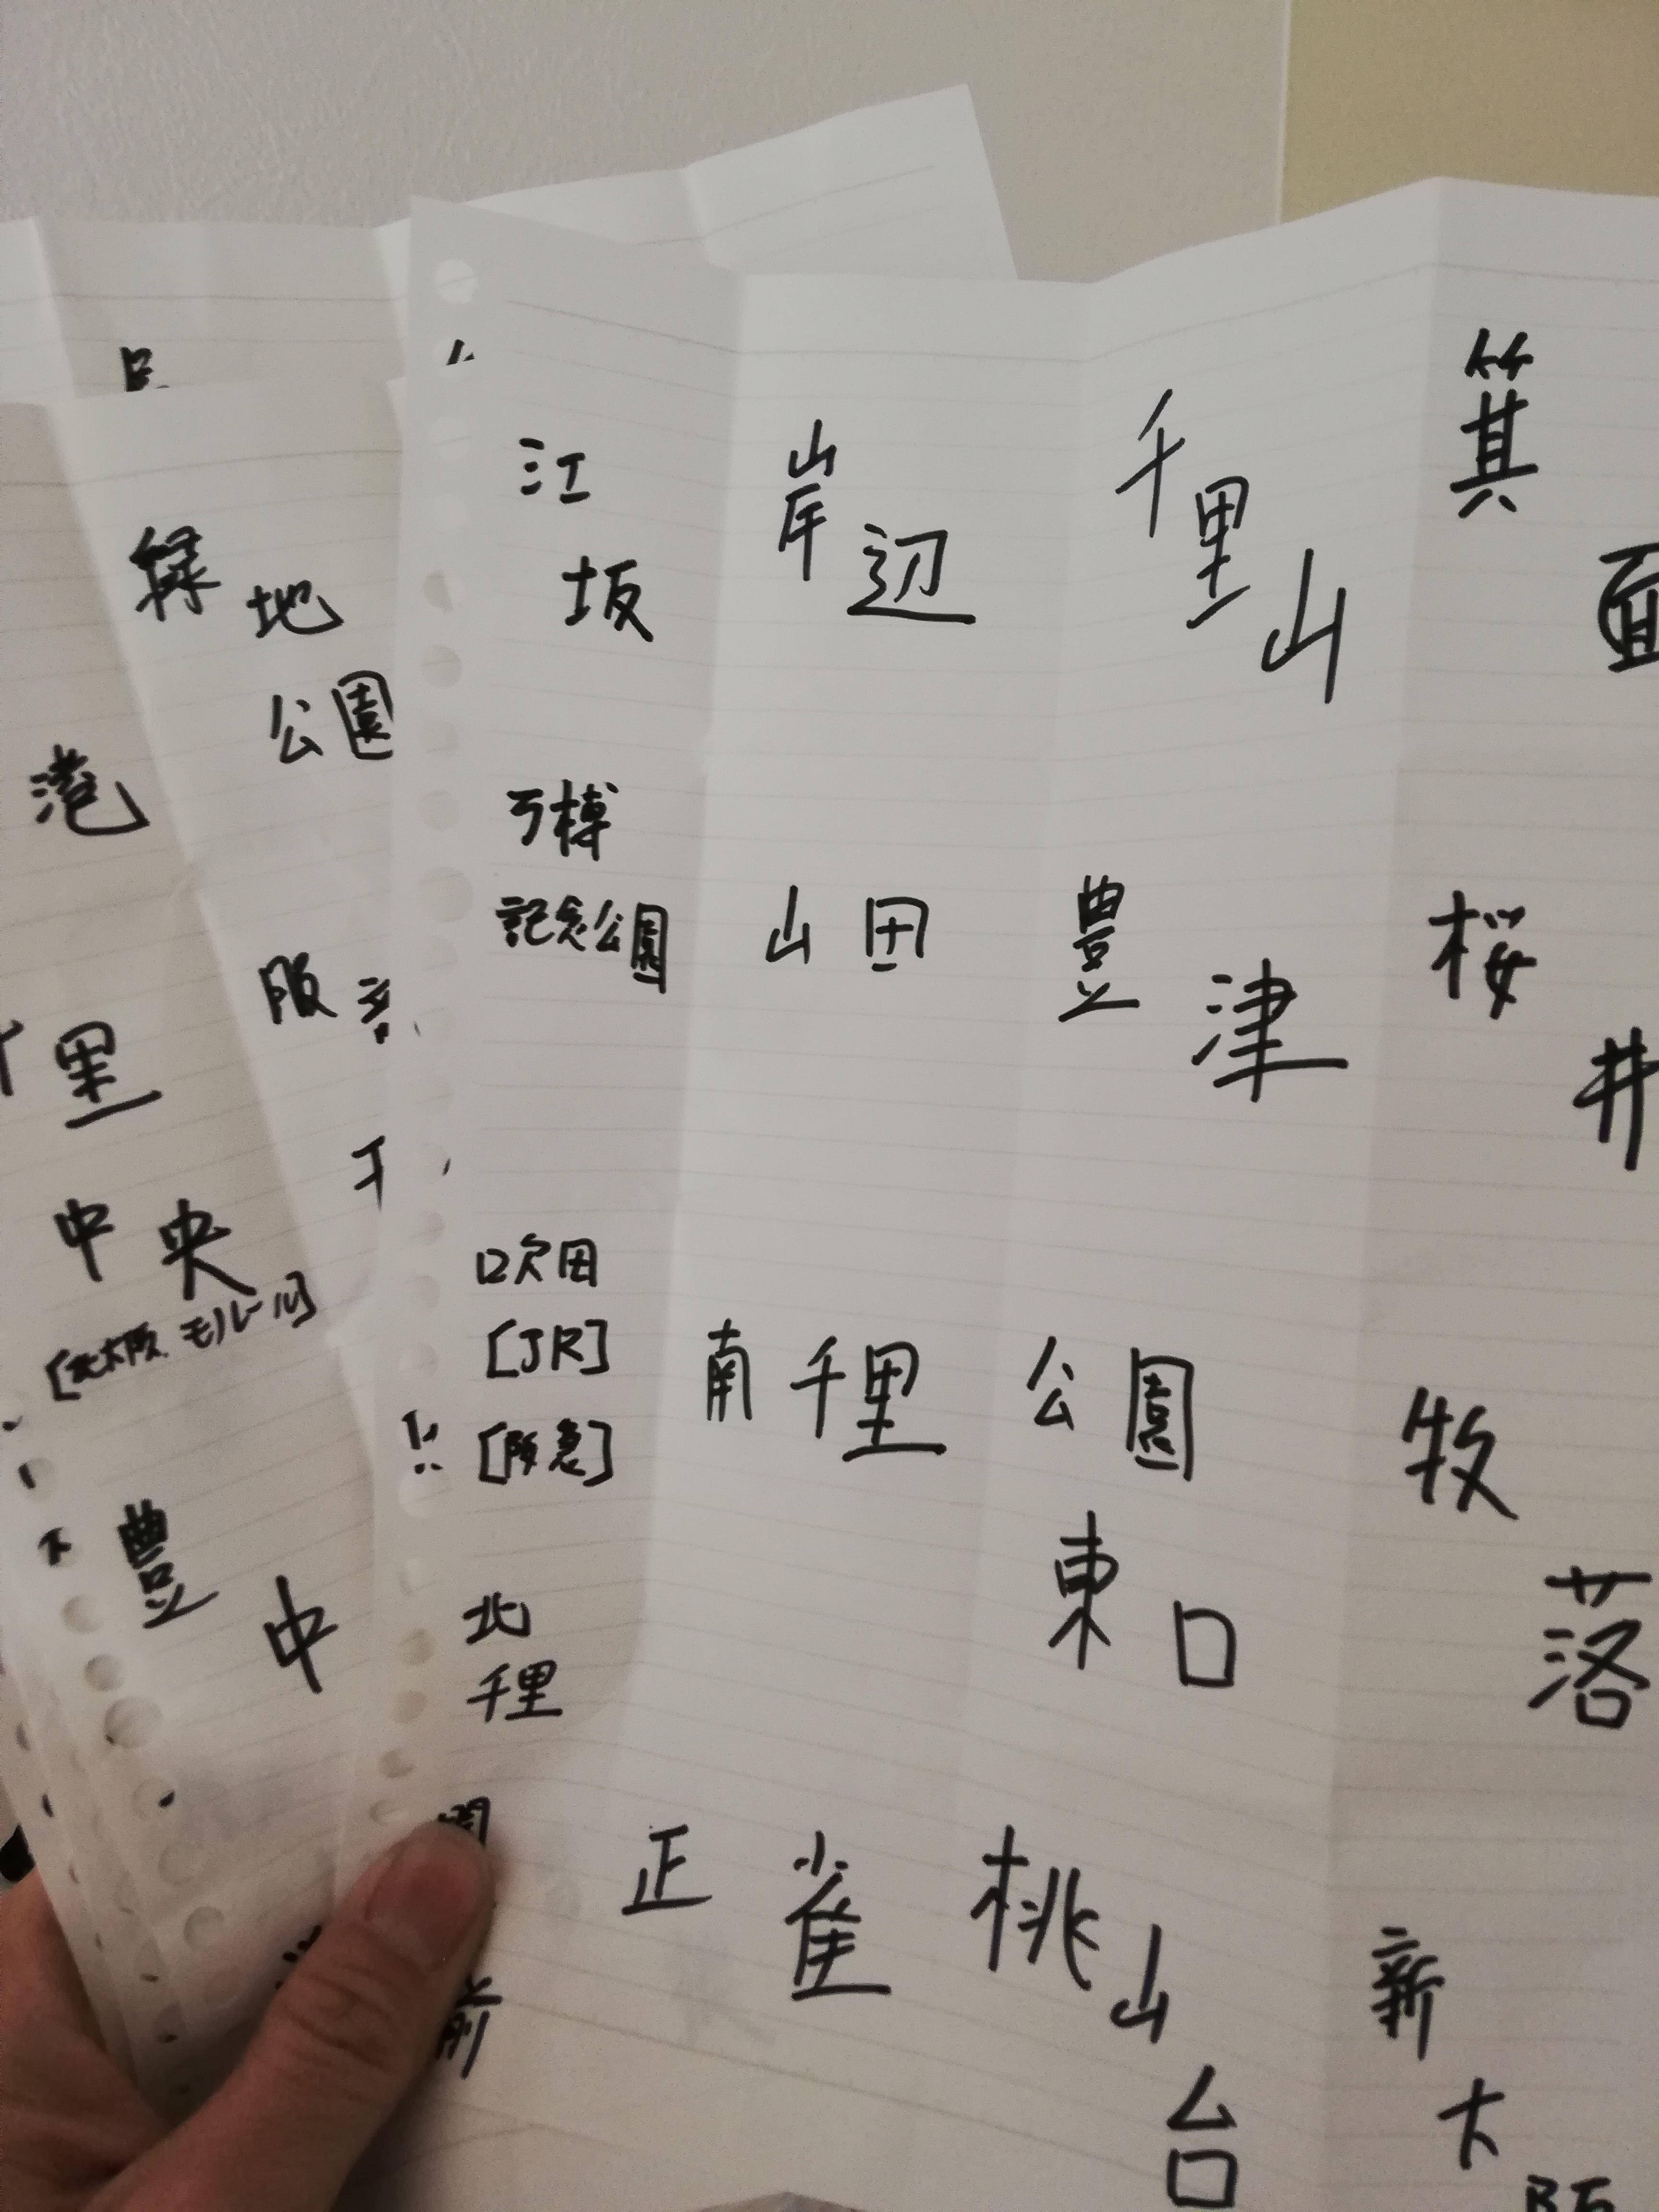 江坂
岸辺
千里山
箕面
万博
記念公園
山田
豊津
桜井
吹田
[JR]
[阪急]
南千里
公園
東口
牧落
北
千里
正雀
桃山台
新大阪
緑地
公園
服
港
里
中央
[大阪モノレール]
豊中
前